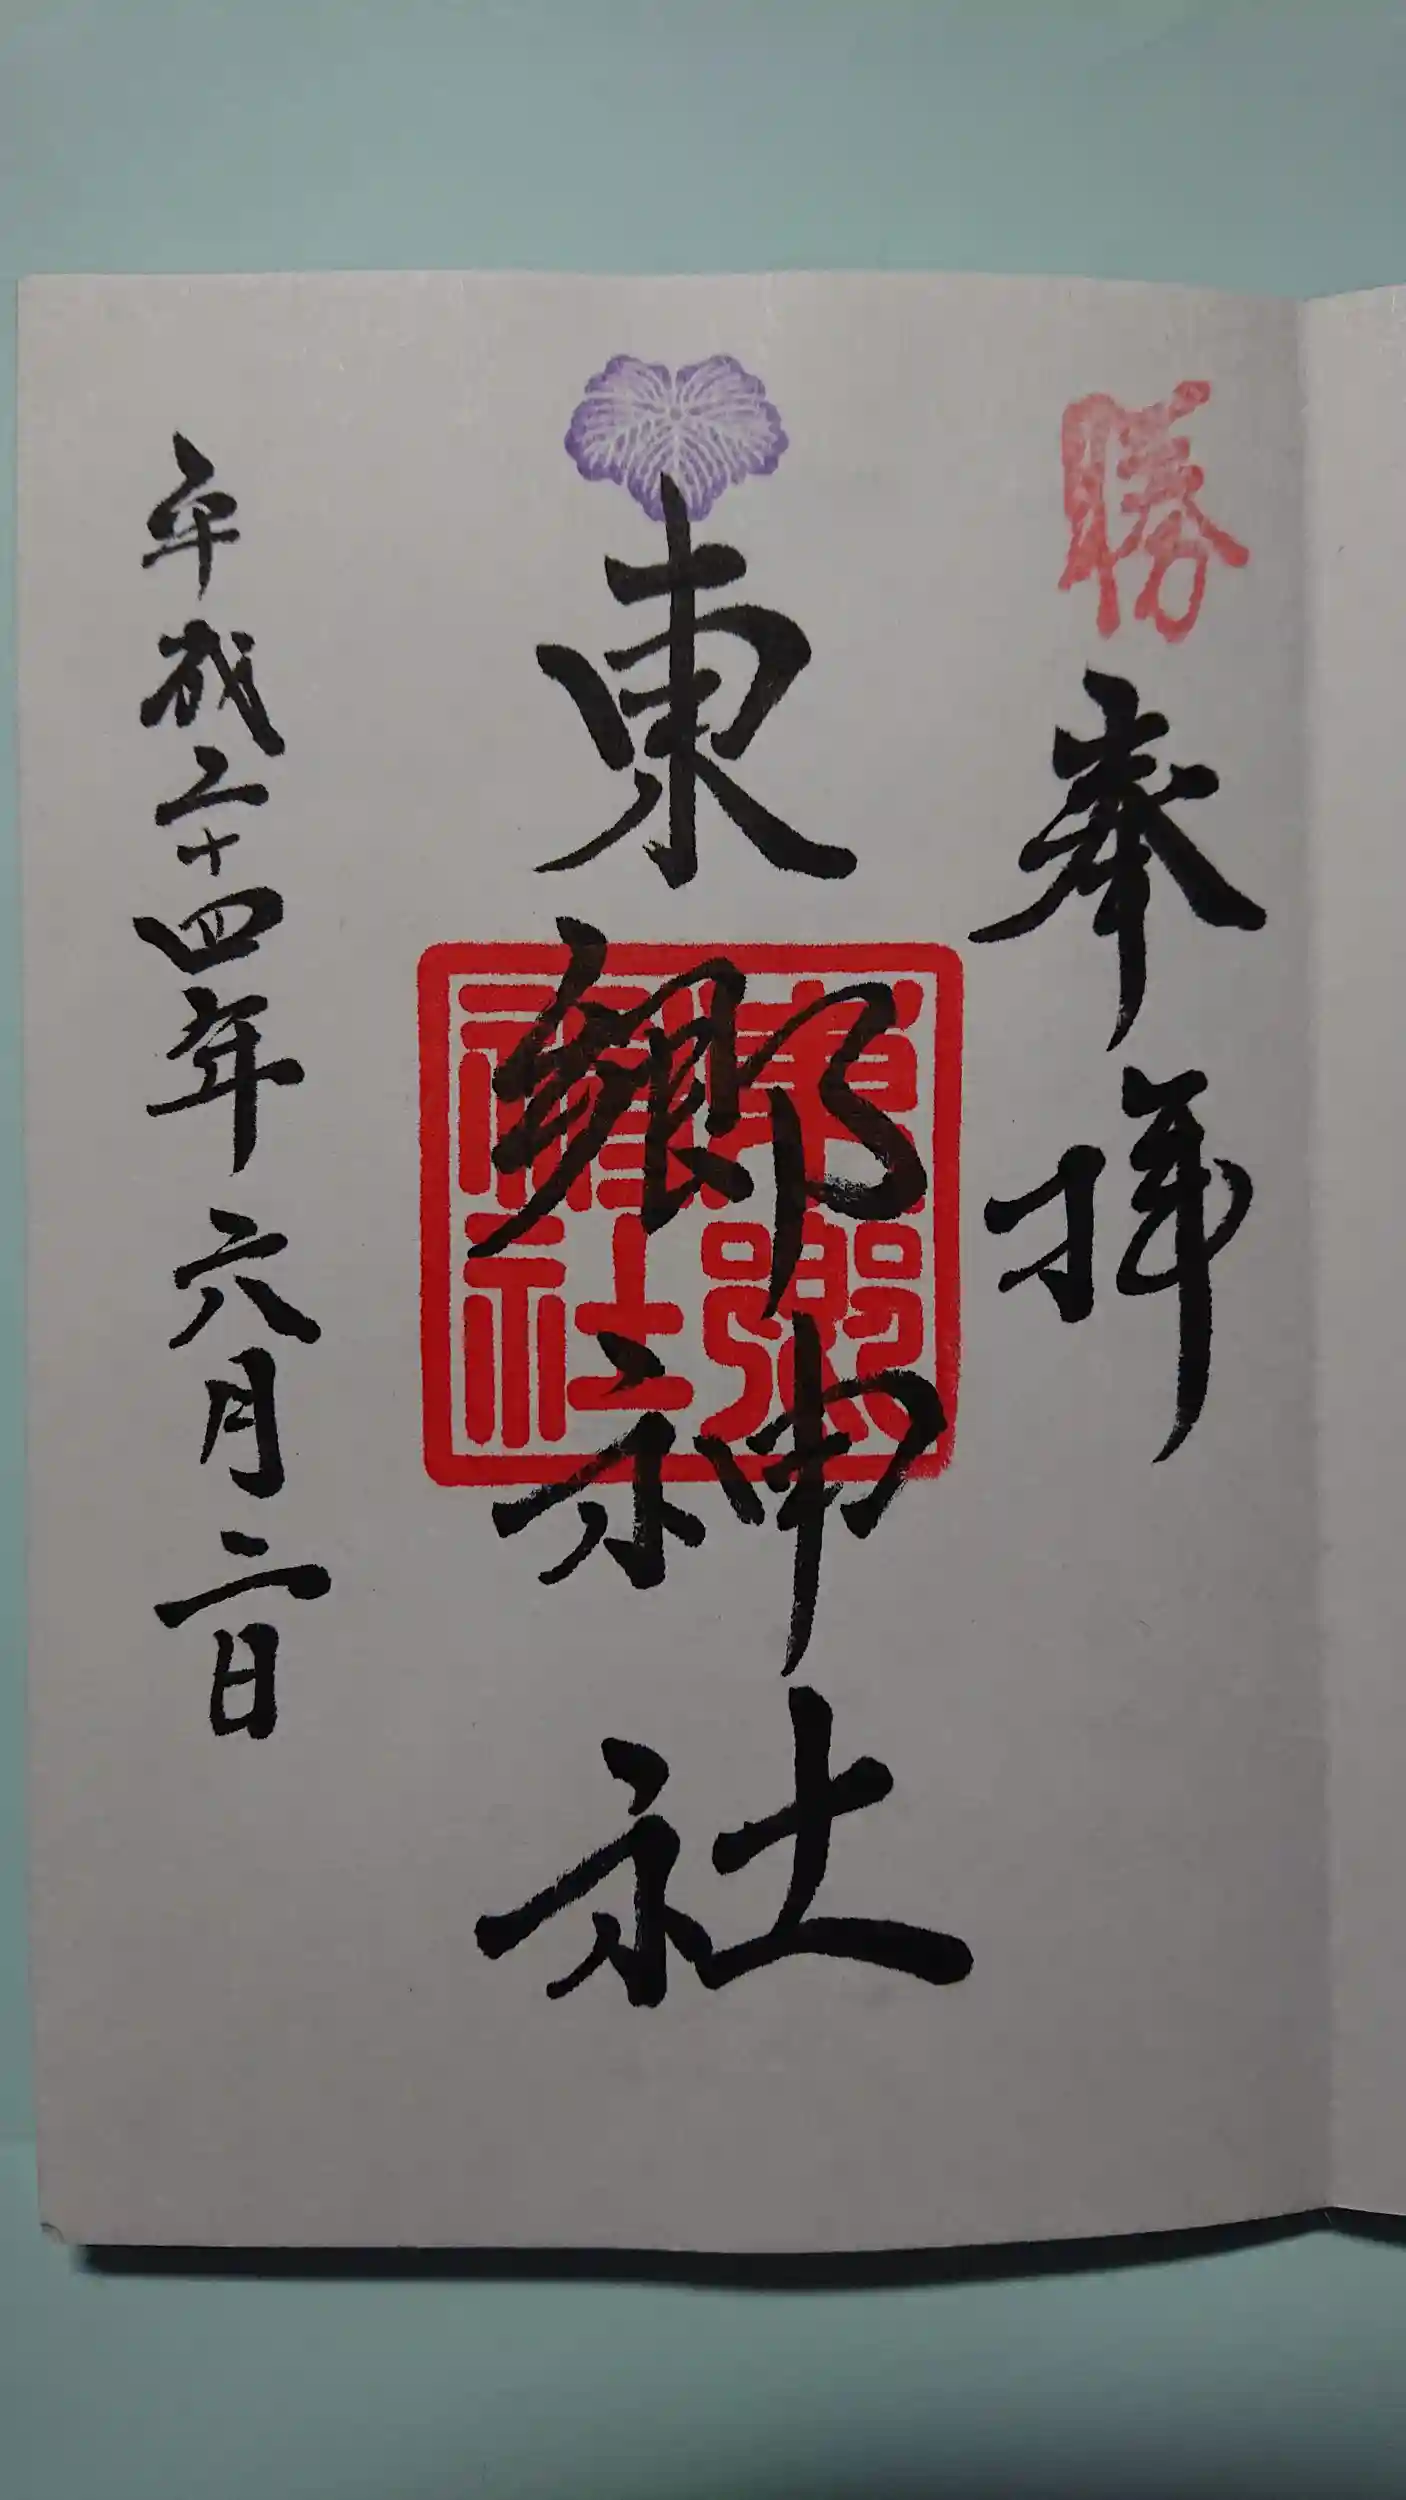 勝
奉拝
東郷神社
東郷神社
平成二十四年六月二日